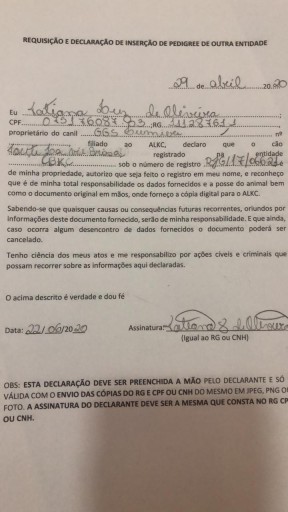 REQUISIÇÃO E DECLARAÇÃO DE INSERÇÃO DE PEDIGREE DE OUTRA ENTIDADE
29 de abril 2020
Eu Tatiana de Oliveira,
CPF RG
proprietário do canil GGS nº
filiado ao ALKC, declaro que o cão
registrado na entidade
CBKC sob o número de registro
de minha propriedade, autorizo que seja feito o registro em meu nome, e reconheço
que é de minha total responsabilidade os dados fornecidos e a posse do animal bem
como o documento original em mãos, onde forneço a cópia digital para o ALKC.
Sabendo-se que quaisquer causas ou consequências futuras recorrentes, oriundos por
informações deste documento fornecido, serão de minha responsabilidade. E que ainda,
caso ocorra algum desencontro de dados fornecidos o documento poderá ser
cancelado.
Tenho ciência dos meus atos e me responsabilizo por ações cíveis e criminais que
possam recorrer sobre as informações aqui declaradas.
O acima descrito é verdade e dou fé
Data: 22/06/2020 Assinatura: Tatiana S de Oliveira
(Igual ao RG ou CNH)
OBS: ESTA DECLARAÇÃO DEVE SER PREENCHIDA A MÃO PELO DECLARANTE E SÓ
VÁLIDA COM O ENVIO DAS CÓPIAS DO RG E CPF OU CNH DO MESMO EM JPEG, PNG OU
FOTO. A ASSINATURA DO DECLARANTE DEVE SER A MESMA QUE CONSTA NO RG
OU CNH.